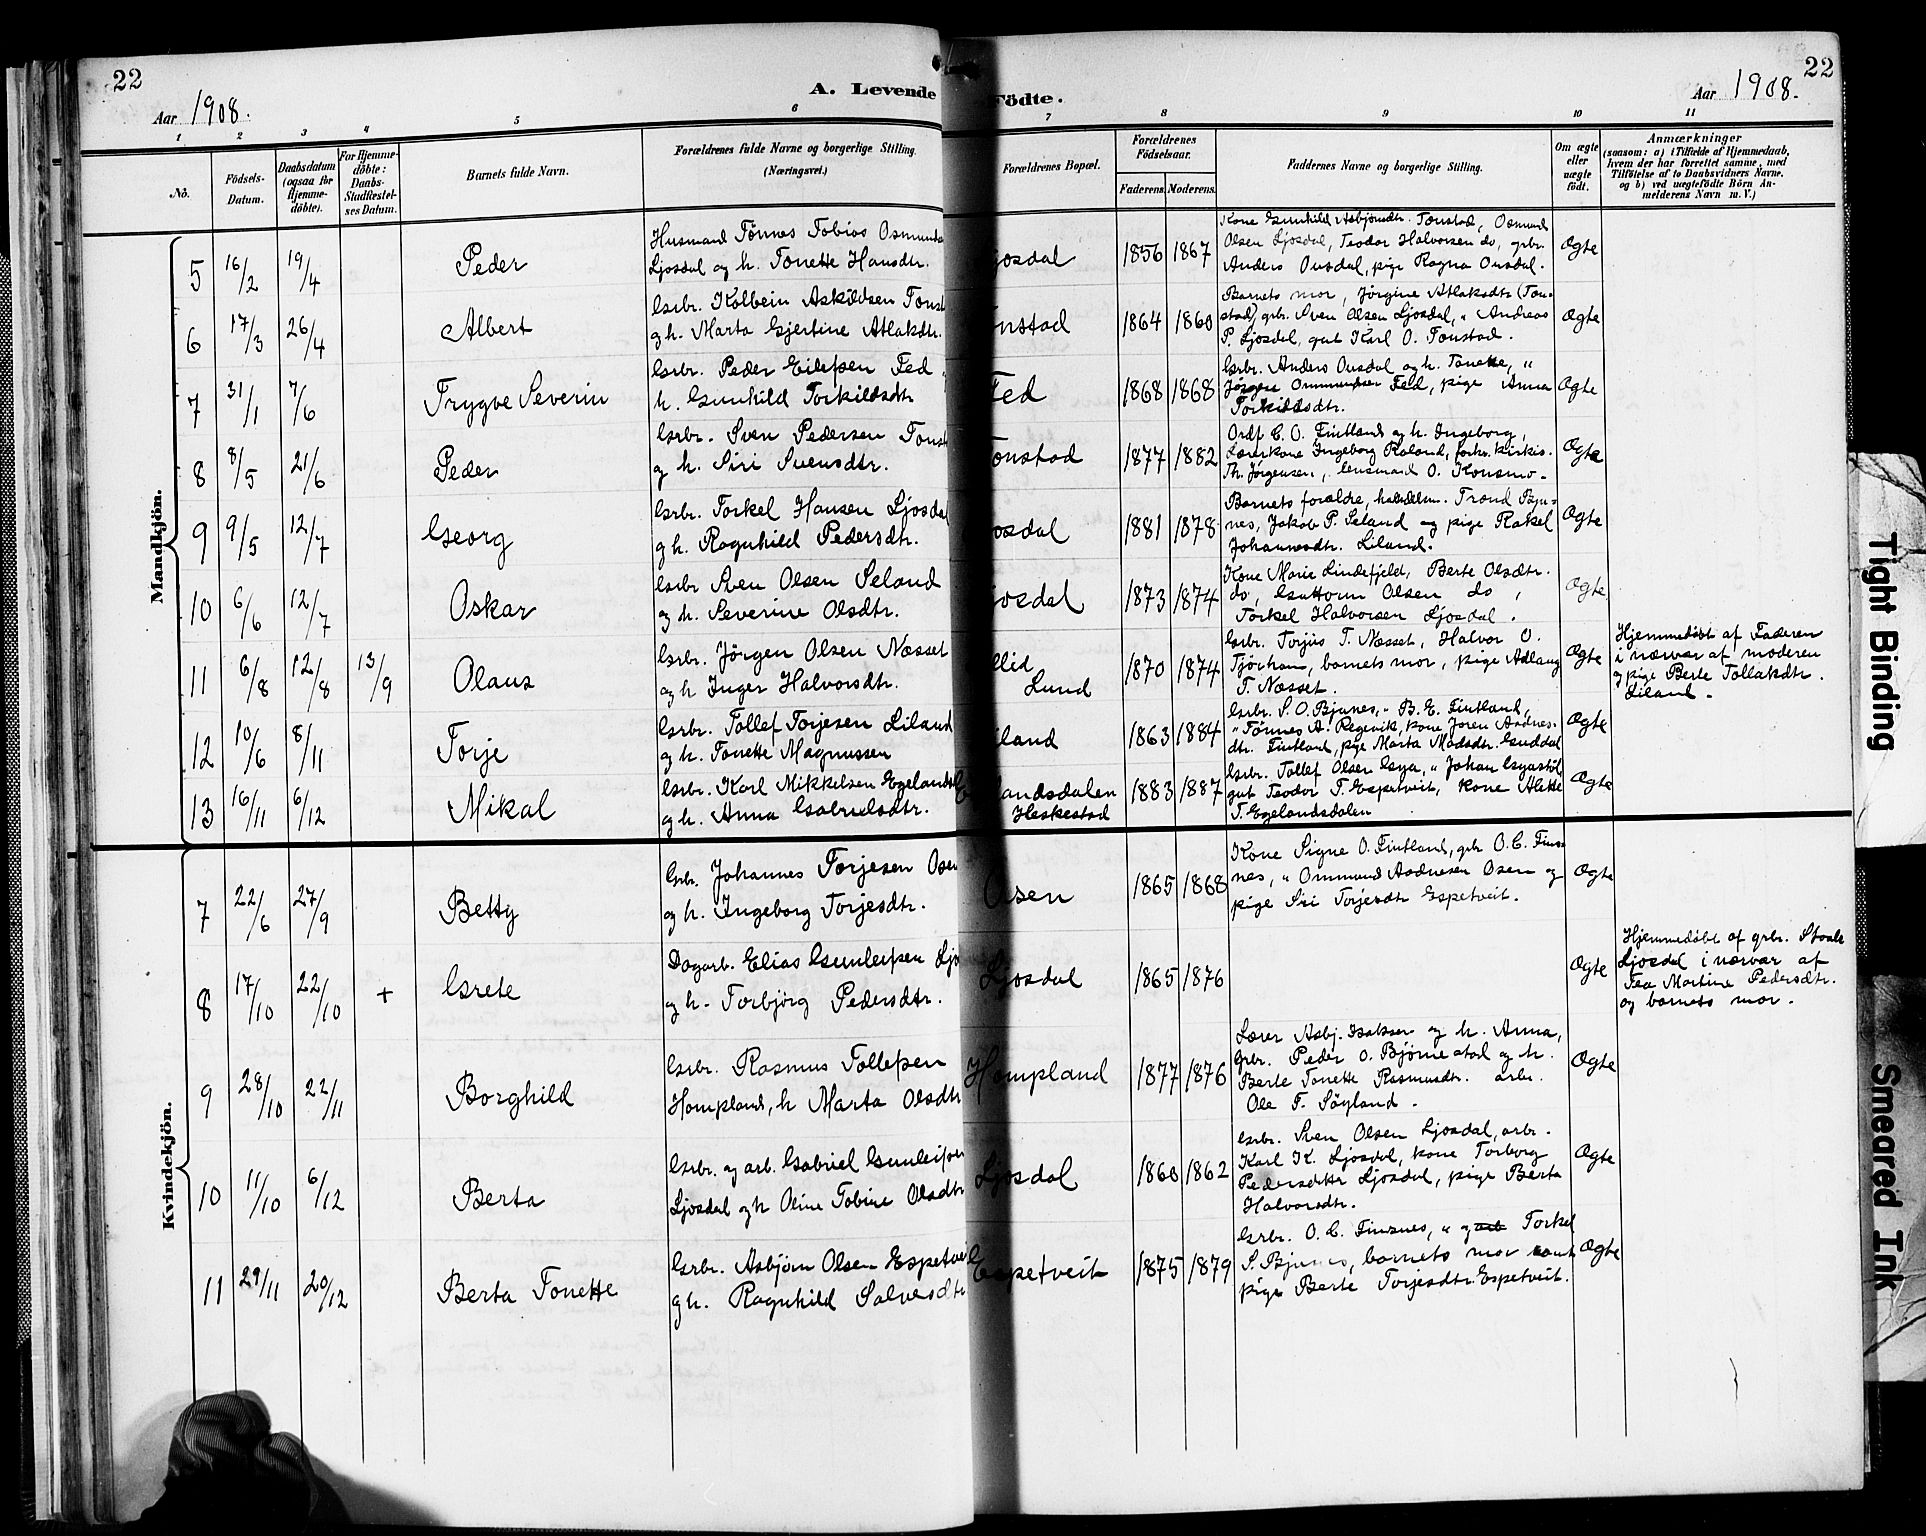 22
Aar 1908.
A. Levende Födte.
22
Aar 1908.
1 2 3 4 5 6 7 8 9 10 11
No.
Födsels-Datum.
Daabsdatum (ogsaa for Hjemme-döbte).
For Hjemme-döbte: Daabs-Stadfæstel-ses Datum.
Barnets fulde Navn.
Forældrenes fulde Navne og borgerlige Stilling.
(Næringsvei.)
Forældrenes Bopæl.
Forældrenes Födselsaar.
Faderens. Moderens.
Faddernes Navne og borgerlige Stilling.
Om ægte eller uægte födt.
Anmærkninger
(saasom: a) i Tilfælde af Hjemmedaab,
hvem der har forrettet samme, med
Tilföielse af to Daabsvidners Navne,
og b) ved uægtefödte Börn An-
melderens Navn m. V.)
Mandkjön.
5 16/2 19/4 Peder
Husmand Tönnes Tobias Osmundsen
Ljosdal og h. Tonette Hansdtr.
josdal 1856 1867
Kone Gunhild Asbjörnsdtr. Tonstad, Osmund
Olsen Ljosdal, Teodor Halvorsen do, grbr.
Anders Ousdal, pige Ragna Ousdal.
Ægte
6 17/3 26/4 Albert
Grbr. Kolbein Askildsen Tonst
og h. Marta Gjertine Atlaksdtr.
onstad 1864 1860
Barnets mor, Jörgine Atlaksdtr (Ton-
stad), grbr. Sven Olsen Ljosdal, " Andreas
P. Ljosdal, gut Karl O. Tonstad.
Ægte
7 31/1 7/6 Trygve Severin
Grbr. Peder Eilefsen Fed
h. Gunhild Torkildsdtr
Fed 1868 1868
Grbr. Anders Ousdal og h. Tonette, "
Jörgen Ommundsen Fed, pige Anna
Torkildsdtr.
Ægte
8 8/5 21/6 Peder
Grbr. Sven Pedersen Tonst
og h. Siri Svensdtr.
onstad 1877 1882
Ordf C. O. Fintland og h. Ingeborg,
Lærerkone Ingeborg Roland, forhv. kirkes.
Th. Jörgensen, lensmand O. Konsmo.
Ægte
9 9/5 12/7 Georg
Grbr. Torkel Hansen Ljosdal
og h. Ragnhild Pedersdtr.
osdal 1881 1878
Barnets forældre, handelsm. Trond Bjun-
nes, Jakob P. Seland og pige Rakel
Johannesdtr. Liland.
Ægte
10 6/6 12/7 Oskar
Grbr Sven Olsen Seland
og h. Severine Olsdtr.
josdal 1873 1874
Kone Marie Lindefjeld, Berte Olsdtr.
do, Guttorm Olsen do,
Torkel Halvorsen Ljosdal.
Ægte
11 6/8 12/8 13/9 Olaus
Grbr. Jörgen Olsen Næsset
og h Inger Halvorsdtr.
llid
Lund 1870 1874
Grbr. Torjus T. Næsset, Halvor O.
Tjörhom, barnets mor, pige Adlaug
T. Næsset.
Ægte
Hjemmedöbt af Faderen
i nærvær af moderen
og pige Berte Tollaksdtr.
Liland.
12 10/6 8/11 Torje
Grbr. Tollef Torjesen Liland
og h. Tonette Magnussen
iland 1863 1884
Grbr. S. O. Bjunes, " B. E. Fintland,
" Tönnes A. Regevik, kone Joren Aadnes-
dtr. Fintland, pige Marta Madsdtr. Guddal
Ægte
13 16/11 6/12 Mikal
Grbr. Karl Mikkelsen Egelandsd
og h. Anna Gabrielsdtr.
landsdalen
Heskestad 1883 1887
Grbr. Tollef Olsen Gya, " Johan Gyastöl
gut Teodor T. Espetveit, kone Alette
T. Egelandsdalen
Ægte
Kvindekjön.
7 22/6 27/9 Betty
Grbr. Johannes Torjesen Osen
og h. Ingeborg Torjesdtr.
Osen 1865 1868
Kone Signe O. Fintland, grbr O. C. Finsnes,
nes, " Ommund Aadnesen Osen og
pige Siri Torjesdtr Espetveit.
Ægte
8 17/10 22/10 + Grete
Dagarb. Elias Gunleifsen Ljo
og h. Torbjörg Pedersdtr.
Ljosdal 1865 1876
Ægte
Hjemmedöbt af grbr. Staale
Ljosdal i nærvær af
Tea Martine Pedersdtr.
og barnets mor.
9 28/10 22/11 Borghild
Grbr. Rasmus Tollefsen
Hompland, h Marta Olsdtr
Hompland 1877 1876
Lærer Asbj. Isaksen og h. Anna,
Grbr. Peder O. Björnestad og h.
Berte Tonette Rasmusdtr. arbr.
Ole T. Söyland.
Ægte
10 11/10 6/12 Berta
Grbr. og arb. Gabriel Gunleifsen
Ljosdal og h Oline Tobine Olsdtr
Ljosdal 1860 1862
Grbr. Sven Olsen Ljosdal, arbr.
Karl K. Ljosdal, kone Torborg
Pedersdatter Ljosdal, pige Berta
Halvorsdtr.
Ægte
11 29/11 20/12 Berta Tonette
Grbr. Asbjörn Olsen Espetvei
og h. Ragnhild Salvesdtr
Espetveit 1875 1879
Grbr. O. C. Finsnes, " og arb Torkel
S. Bjunes, barnets mor samt
pige Berte Torjesdtr. Espetveit.
Ægte
Tight Binding
Smeared Ink